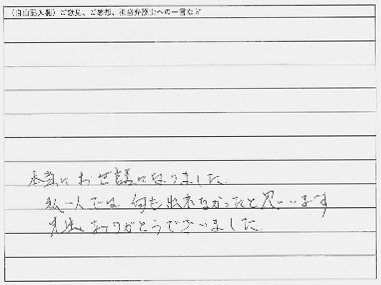 （自由記入欄）ご意見、ご感想、担当弁護士への一言など
本当にお世話になりました
私一人では何も出来なかったと思います
ありがとうございました